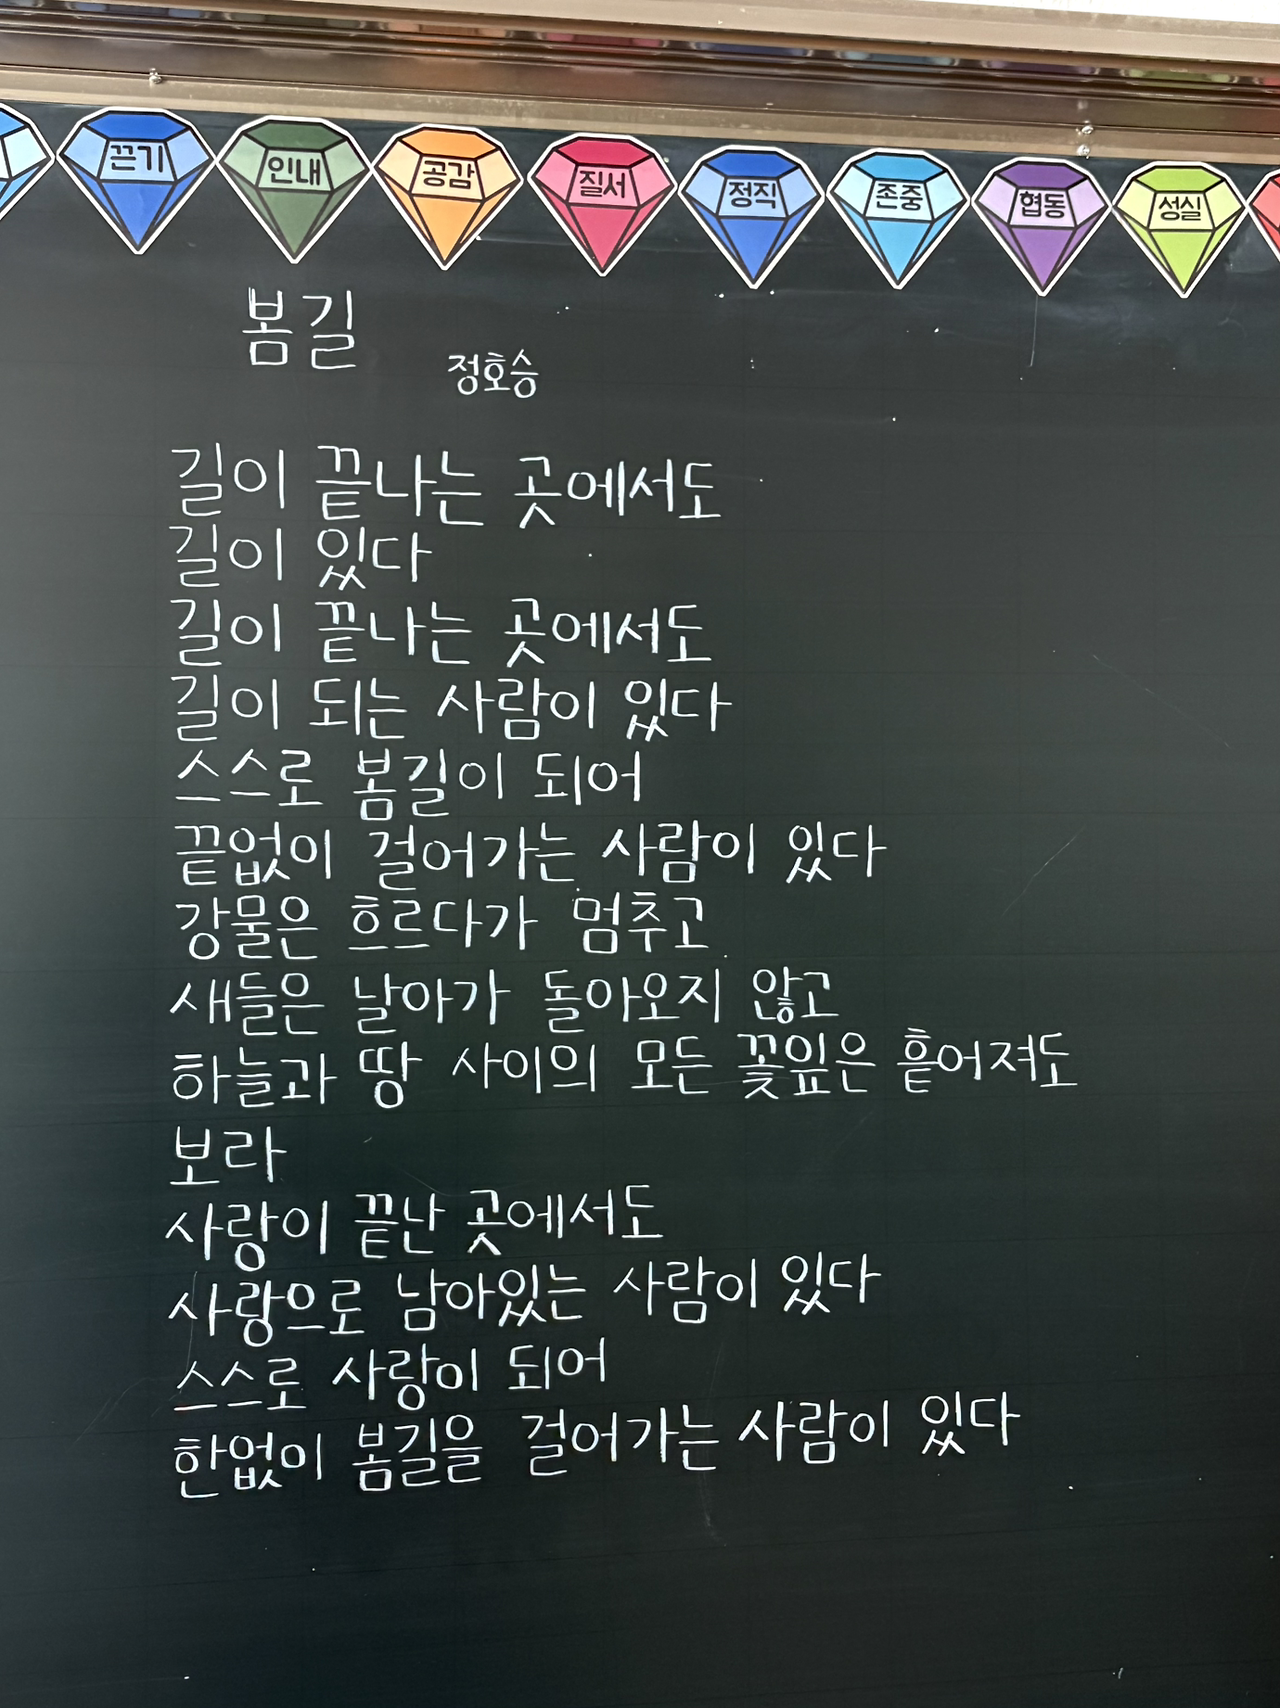 끈기 인내 공감 질서 정직 존중 협동 성실
봄길
정호승
길이 끝나는 곳에서도
길이 있다
길이 끝나는 곳에서도
길이 되는 사람이 있다
스스로 봄길이 되어
끝없이 걸어가는 사람이 있다
강물은 흐르다가 멈추고
새들은 날아가 돌아오지 않고
하늘과 땅 사이의 모든 꽃잎은 흩어져도
보라
사랑이 끝난 곳에서도
사랑으로 남아있는 사람이 있다
스스로 사랑이 되어
한없이 봄길을 걸어가는 사람이 있다